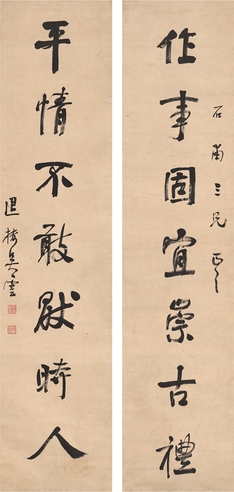 石甫三兄正之
作事固宜崇古禮
平情不敢猒時人
退樓吳雲